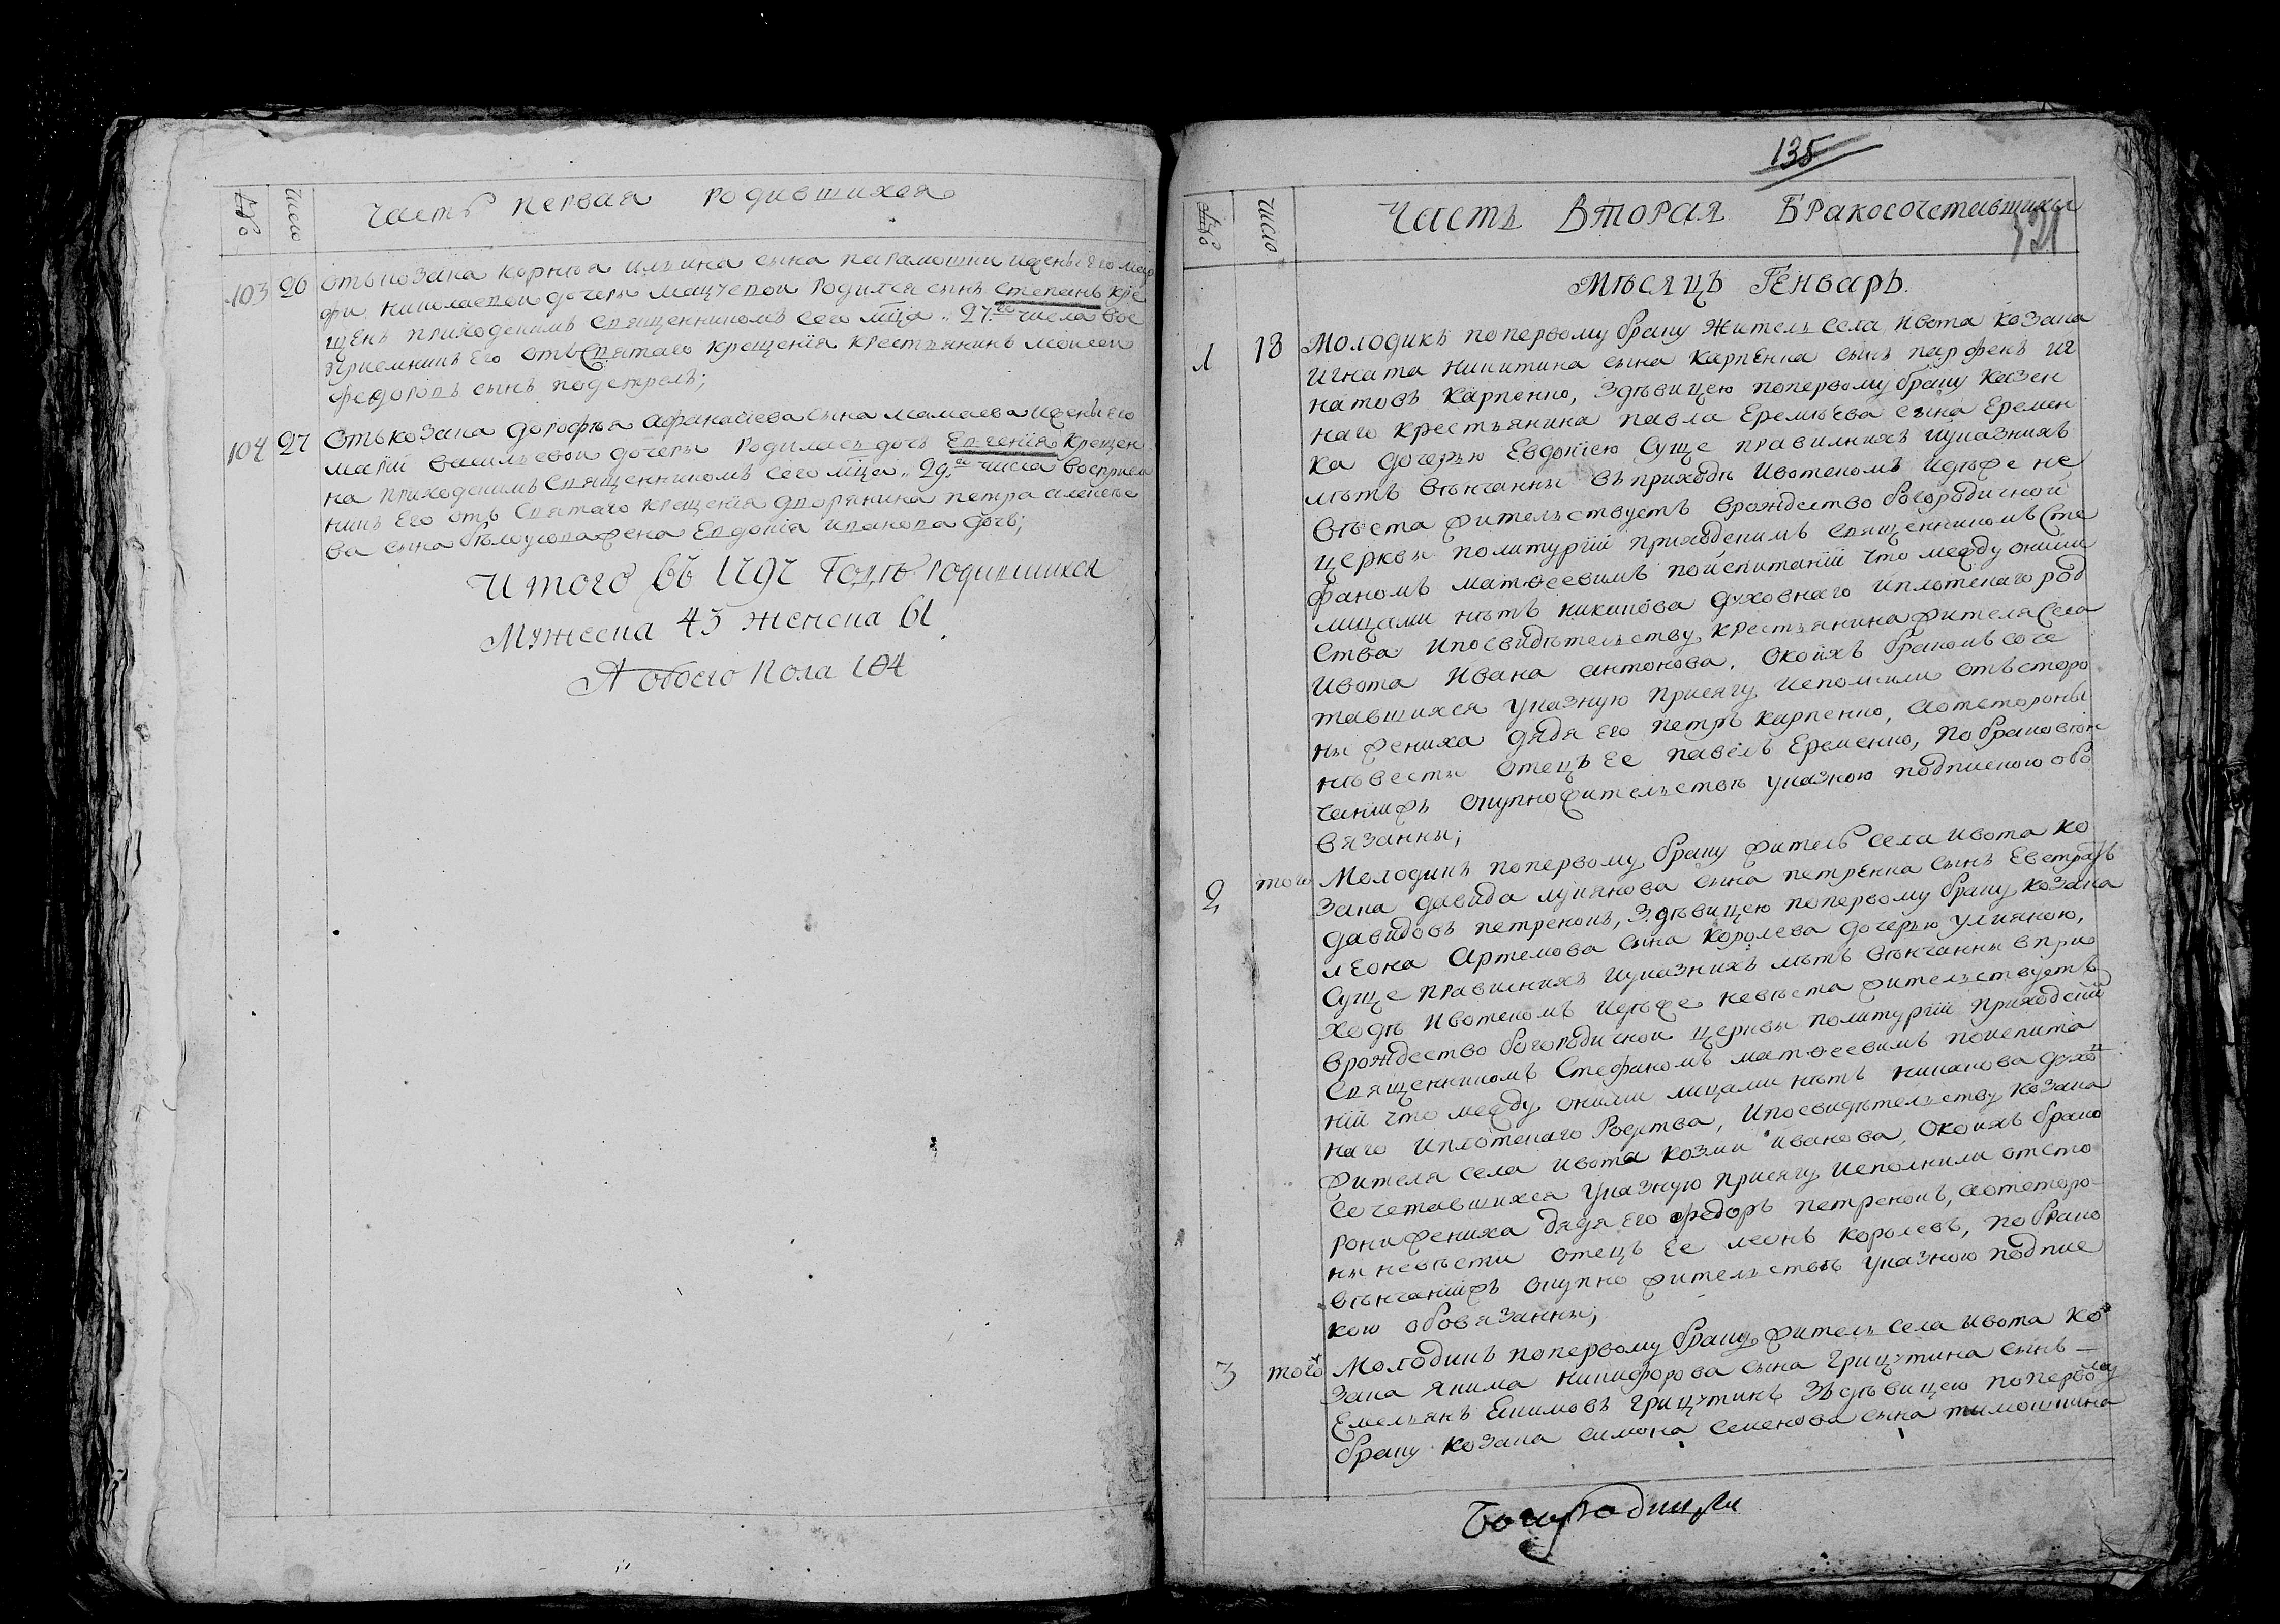 Часть первая родившихся
№
Число
103 26 Отъ козака корнѣя ильина сына парамошки и жены его мар
фи николаевой дочери родился сынъ Степанъ кре
щенъ приходскимъ священникомъ сего мца 27го числа вос
приемникъ Его отъ Святаго крещенїя крестьянинъ моисей
федоровъ сынъ подстрелъ;
104 27 Отъ козака дорофѣя афанасиева сына мамаева и жены его
марїи васильевой дочери родилась дочь Евгенїя крещен
на приходскимъ Священникомъ сего мца 29го числа восприем
никъ Его отъ Святаго крещенїя дворянина петра алексѣе
ва сына жена Евдокїя иванова дочь;
Итого въ 1797 Годѣ родившихся
Мужеска 43 женска 61
А обоего Пола 104
135
Часть Вторая Бракосочетавшихся
№
Число
Мѣсяцъ Генварь.
1 18 Молодикъ попервому браку Житель села Ивота козака
Игната никитина сына карпенка сынъ парфенъ иг
натовъ карпенко, здѣвицею попервому браку казен
наго крестьянина павла Еремѣева сына Еремен
ка дочерью Евдокїею Суще правилнихъ иуказнихъ
лѣтъ вѣнчанны въприходѣ Ивотскомъ идѣже не
вѣста жительствуетъ врождество богородичной
церкви политургїи приходскимъ священникомъ Сте
фаномъ матѳеевимъ поиспитанїи что между оними
лицами нѣтъ никакова духовнаго иплотскаго род
ства ипосвидѣтельству крестьянина жителя села
Ивота Ивана антонова, окоихъ бракомъ соче
тавшихся указную присягу исполнили отъсторо
ны жениха дядя его петръ карпенко, аотстороны
нѣвесты отецъ ее павелъ Еременко, побраковѣн
чанїижъ окупножительствѣ указною подпискою обо
вязанны;
2 того Молодикъ попервому браку житель села ивота ко
зака давида лукянова сына петренка сынъ Евстратъ
давидовъ петренокъ, здѣвицею попервому браку козака
леона Артемова сына королева дочерью улияною,
Суще правилнихъ иуказнихъ лѣтъ вѣнчанны впри
ходѣ ивотскомъ идѣже невѣста жительствуетъ
врождество богородичной церкви политургїи приходскимъ
Священникомъ Стефаномъ матѳеевимъ поиспита
нїи что между оними лицами нѣтъ никакова духов
наго иплотскаго Родства, ипосвидѣтельству козака
жителя села ивота козми иванова, окоихъ брако
сочетавшихся указную присягу исполнили отсто
рони жениха дядя его федоръ петренокъ, аотсторо
ны невѣсти отецъ ее леонъ королевъ, побрако
вѣнчанїижъ окупно жительствѣ указною подпис
кою обовязанны;
3 того Молодикъ попервому браку житель села ивота ко
зака якима никифорова сына грицутина сынъ
Емельянъ Екимовъ грицутинъ здѣвицею попервому
браку козака симона семенова сына тимошкина